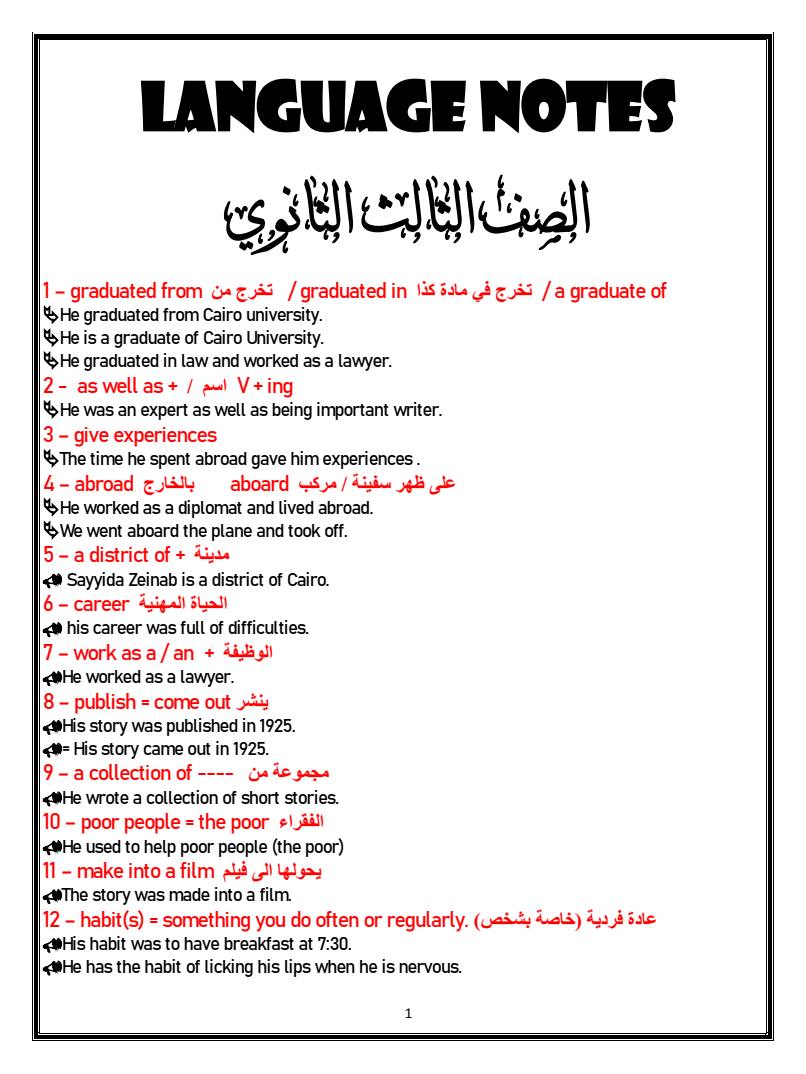 LANGUAGE NOTES
الصف الثالث الثانوي
1 – graduated from تخرج من / graduated in تخرج في مادة كذا / a graduate of
He graduated from Cairo university.
He is a graduate of Cairo University.
He graduated in law and worked as a lawyer.
2 - as well as + اسم / V + ing
He was an expert as well as being important writer.
3 – give experiences
The time he spent abroad gave him experiences .
4 – abroad بالخارج aboard على ظهر سفينة / مركب
He worked as a diplomat and lived abroad.
We went aboard the plane and took off.
5 – a district of + مدينة
Sayyida Zeinab is a district of Cairo.
6 – career الحياة المهنية
his career was full of difficulties.
7 – work as a / an + الوظيفة
He worked as a lawyer.
8 – publish = come out ينشر
His story was published in 1925.
= His story came out in 1925.
9 – a collection of ---- مجموعة من
He wrote a collection of short stories.
10 – poor people = the poor الفقراء
He used to help poor people (the poor)
11 – make into a film يحولها الى فيلم
The story was made into a film.
12 – habit(s) = something you do often or regularly. عادة فردية (خاصة بشخص)
His habit was to have breakfast at 7:30.
He has the habit of licking his lips when he is nervous.
1